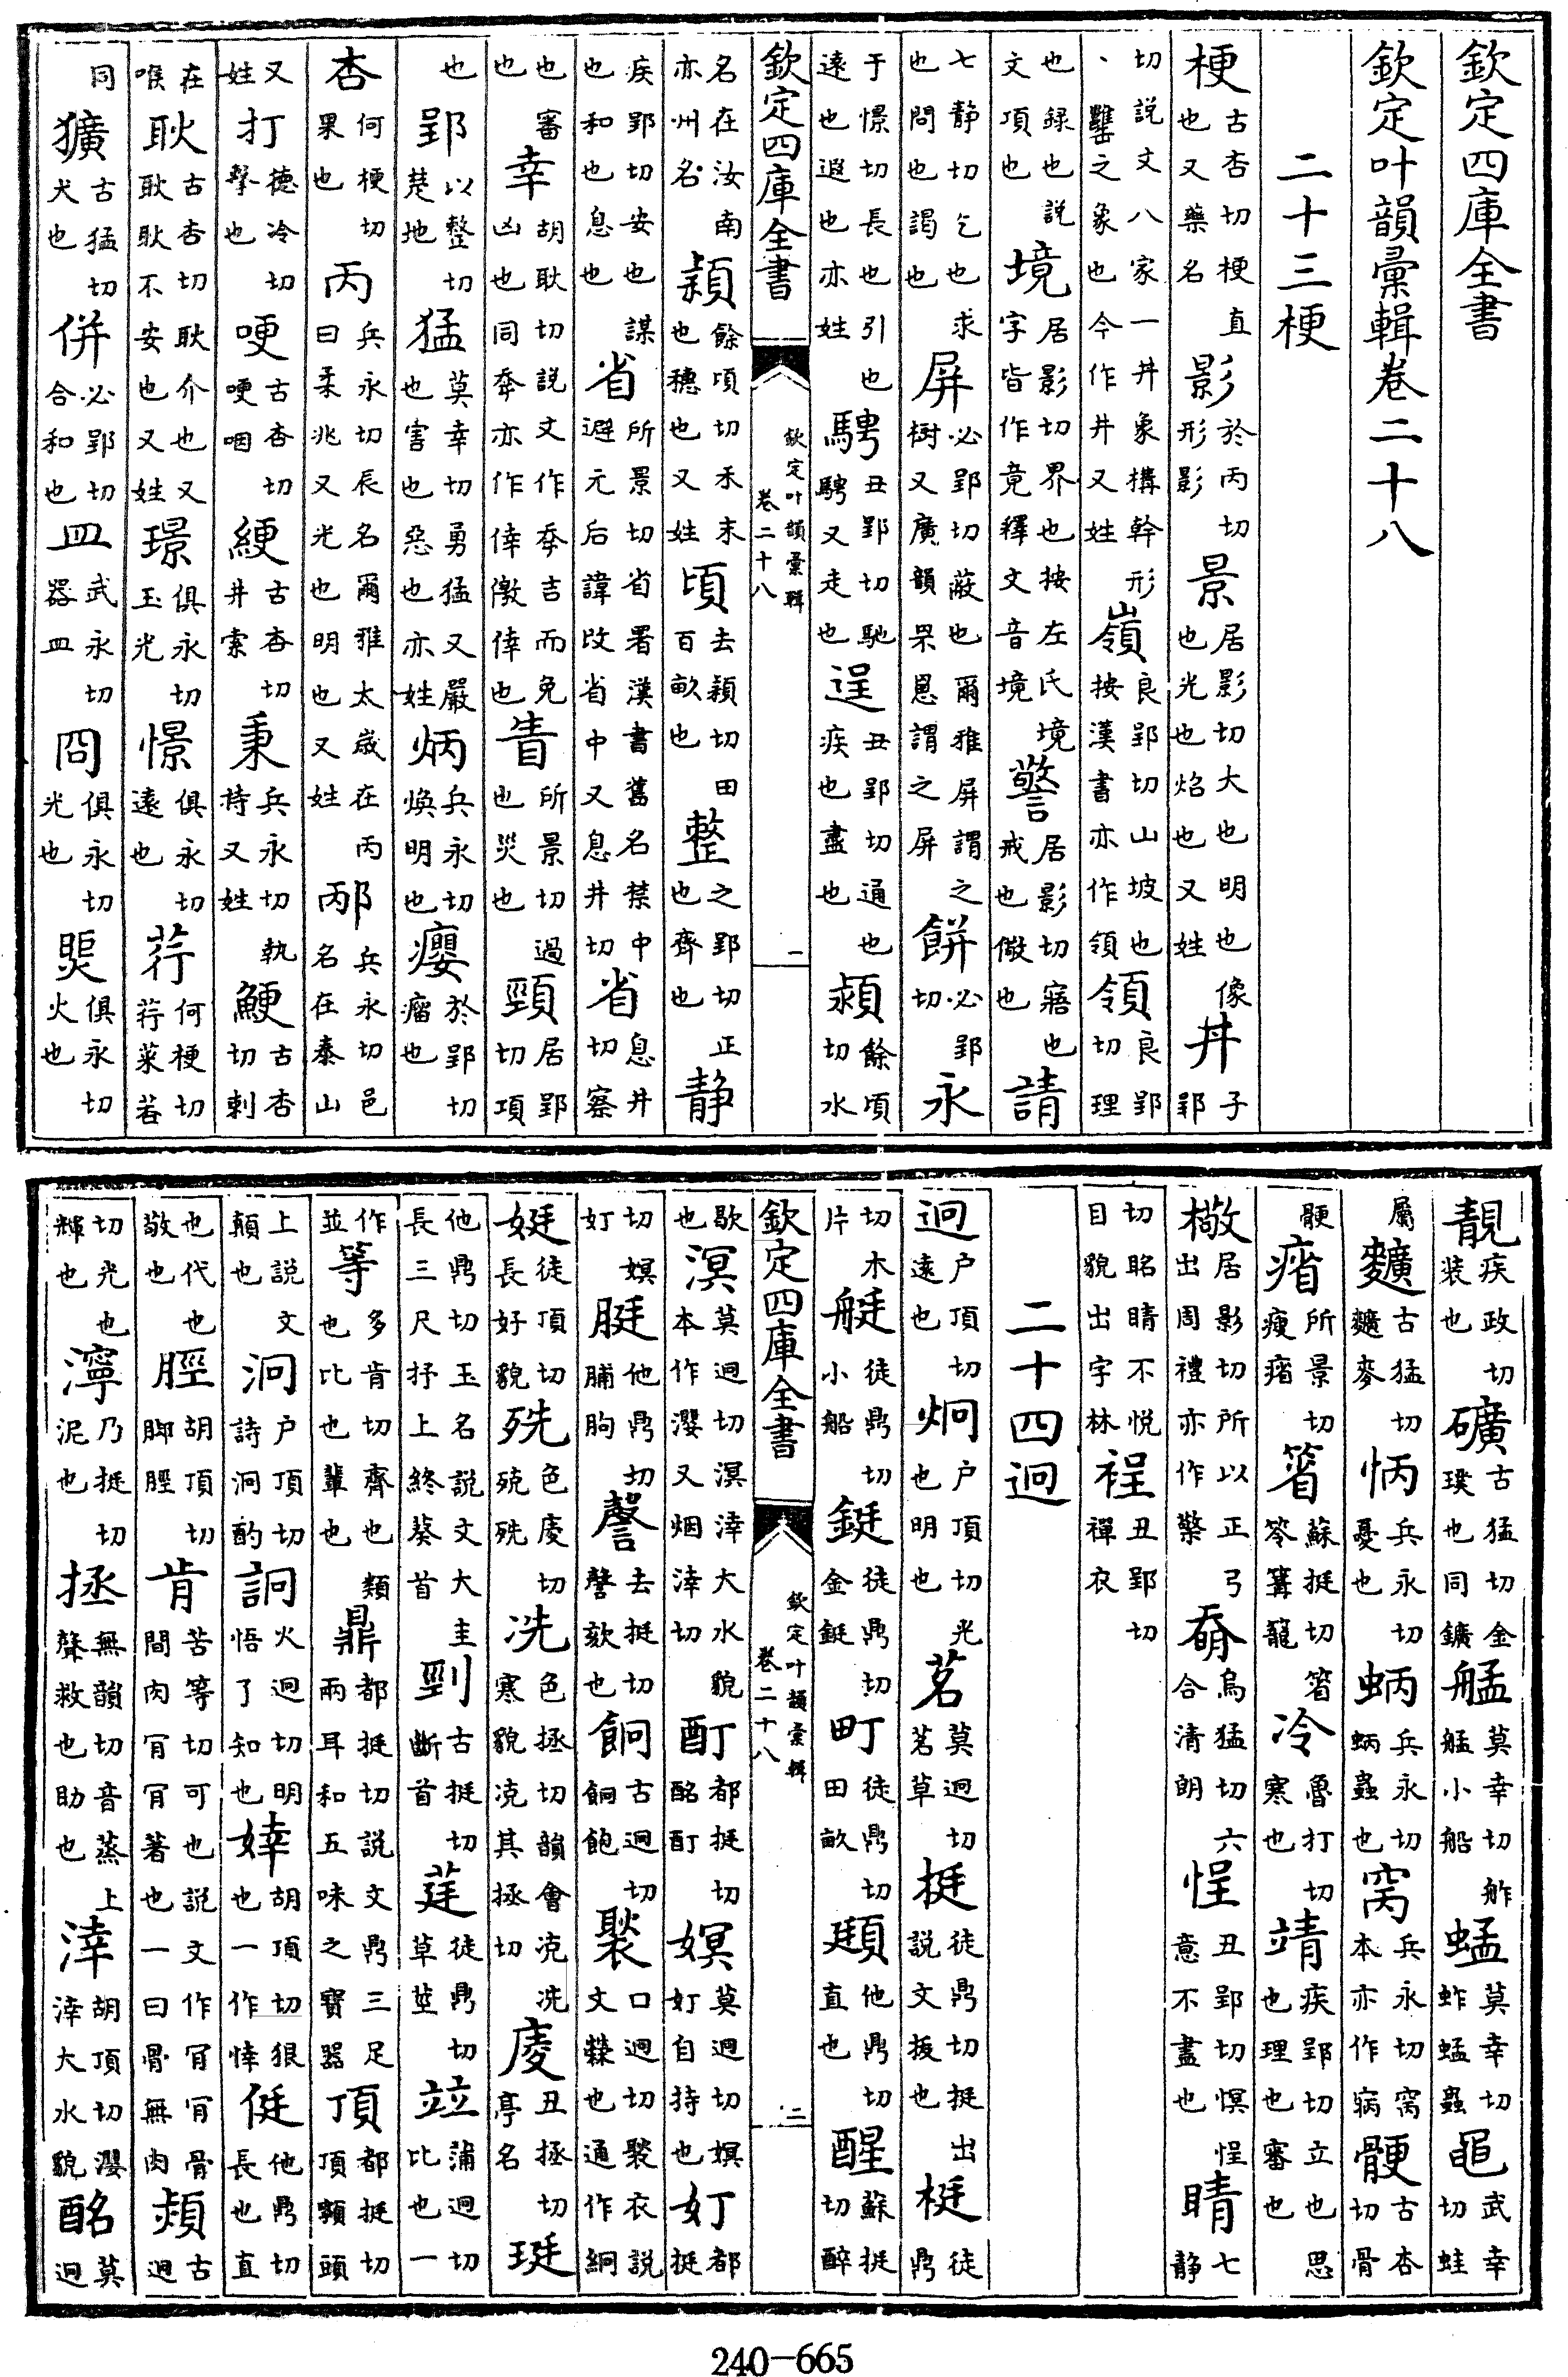 欽定四庫全書
欽定叶韻彙輯卷二十八
二十三梗
梗古杏切梗直也又藥名影於丙切形影景居影切大也明也像也光也焰也又姓井子郢
切説文八家一井象構幹形丶之象也今作井又姓嶺良郢切山坡也按漢書亦作領領良郢切理
也録也説文項也境居影切界也按左氏境字皆作竟釋文音境警居影切寤也戒也儆也請
七静切乞也求也問也謁也屏必郢切蔽也爾雅屏謂之樹又廣韻罘罳謂之屏餅必郢切永
于憬切長也引也遠也遐也亦姓騁丑郢切馳騁又走也逞丑郢切通也疾也盡也潁餘頃切水
欽定四庫全書 欽定叶韻彙輯卷二十八 一
名在汝南亦州名穎餘頃切禾末也穗也又姓頃去穎切田百畝也整之郢切正也齊也静
疾郢切安也謀也和也息也省所景切省署漢書舊名禁中避元后諱改省中又息井切省息井切察
也審也幸胡耿切説文作㚔吉而免凶也同㚔亦作倖儌倖也眚所景切過也災也頸居郢切項
也郢以整切楚地猛莫幸切勇猛又嚴也害也惡也亦姓炳兵永切煥明也癭於郢切瘤也
杏何梗切果也丙兵永切辰名爾雅太歲在丙曰柔兆又光也明也又姓邴兵永切邑名在泰山
又姓打德冷切擊也哽古杏切哽咽綆古杏切井索秉兵永切執持又姓鯁古杏切刺
在喉耿古杏切耿介也又耿耿不安也又姓璟俱永切玉光憬俱永切遠也荇何梗切荇菜若
同獷古猛切犬也併必郢切合和也皿武永切器皿冏俱永切光也煚俱永切火也
靚疾政切装也礦古猛切金璞也同鑛艋莫幸切舴艋小船蜢莫幸切蚱蜢蟲黽武幸切蛙
屬䵃古猛切䵃麥怲兵永切憂也蛃兵永切蛃蟲也窉兵永切窉本亦作㾕骾古杏切骨
骾㾪所景切瘦㾪箵蘇挺切箵笭篝籠冷魯打切寒也靖疾郢切立也思也理也審也
檠居影切所以正弓出周禮亦作檠㚝烏猛切六合清朗悜丑郢切愩悜意不盡也睛七静
切眳睛不悦目貌出字林裎丑郢切襌衣
二十四迥
迥户頂切遠也炯户頂切光也明也茗莫迥切茗草挺徒鼎切挺出説文拔也梃徒鼎
切木片艇徒鼎切小船鋌徒鼎切金鋌町徒鼎切田畝頲他鼎切直也醒蘇挺切醉
欽定四庫全書 欽定叶韻彙輯卷二十八 二
歇也溟莫迥切溟涬大水貌本作瀴又烟涬切酊都挺切酩酊嫇莫迥切嫇奵自持也奵都挺
切嫇奵脡他鼎切脯朐謦去挺切謦欬也䬕古迥切䬕飽褧口迥切褧衣説文檾也通作絅
娗徒頂切長好貌㱡色庱切殑㱡冼色拯切韻會凂冼寒貌凂其拯切庱丑拯切亭名珽
他鼎切玉名説文大圭長三尺抒上終葵首剄古挺切斷首莛徒鼎切草莖竝蒲迥切比也一
作並等多肯切齊也類也比也輩也鼎都挺切説文鼎三足兩耳和五味之寶器頂都挺切頂顙頭
上説文顛也泂户頂切詩泂酌詗火迥切明悟了知也婞胡頂切狠也一作悻侹他鼎切長也直
也代也敬也脛胡頂切脚脛肯苦等切可也説文作肎肎骨間肉肎肎著也一曰骨無肉熲古迥
切光也輝也濘乃挺切泥也拯無韻切音蒸上聲救也助也涬胡頂切瀴涬大水貌酩莫迥
240-665